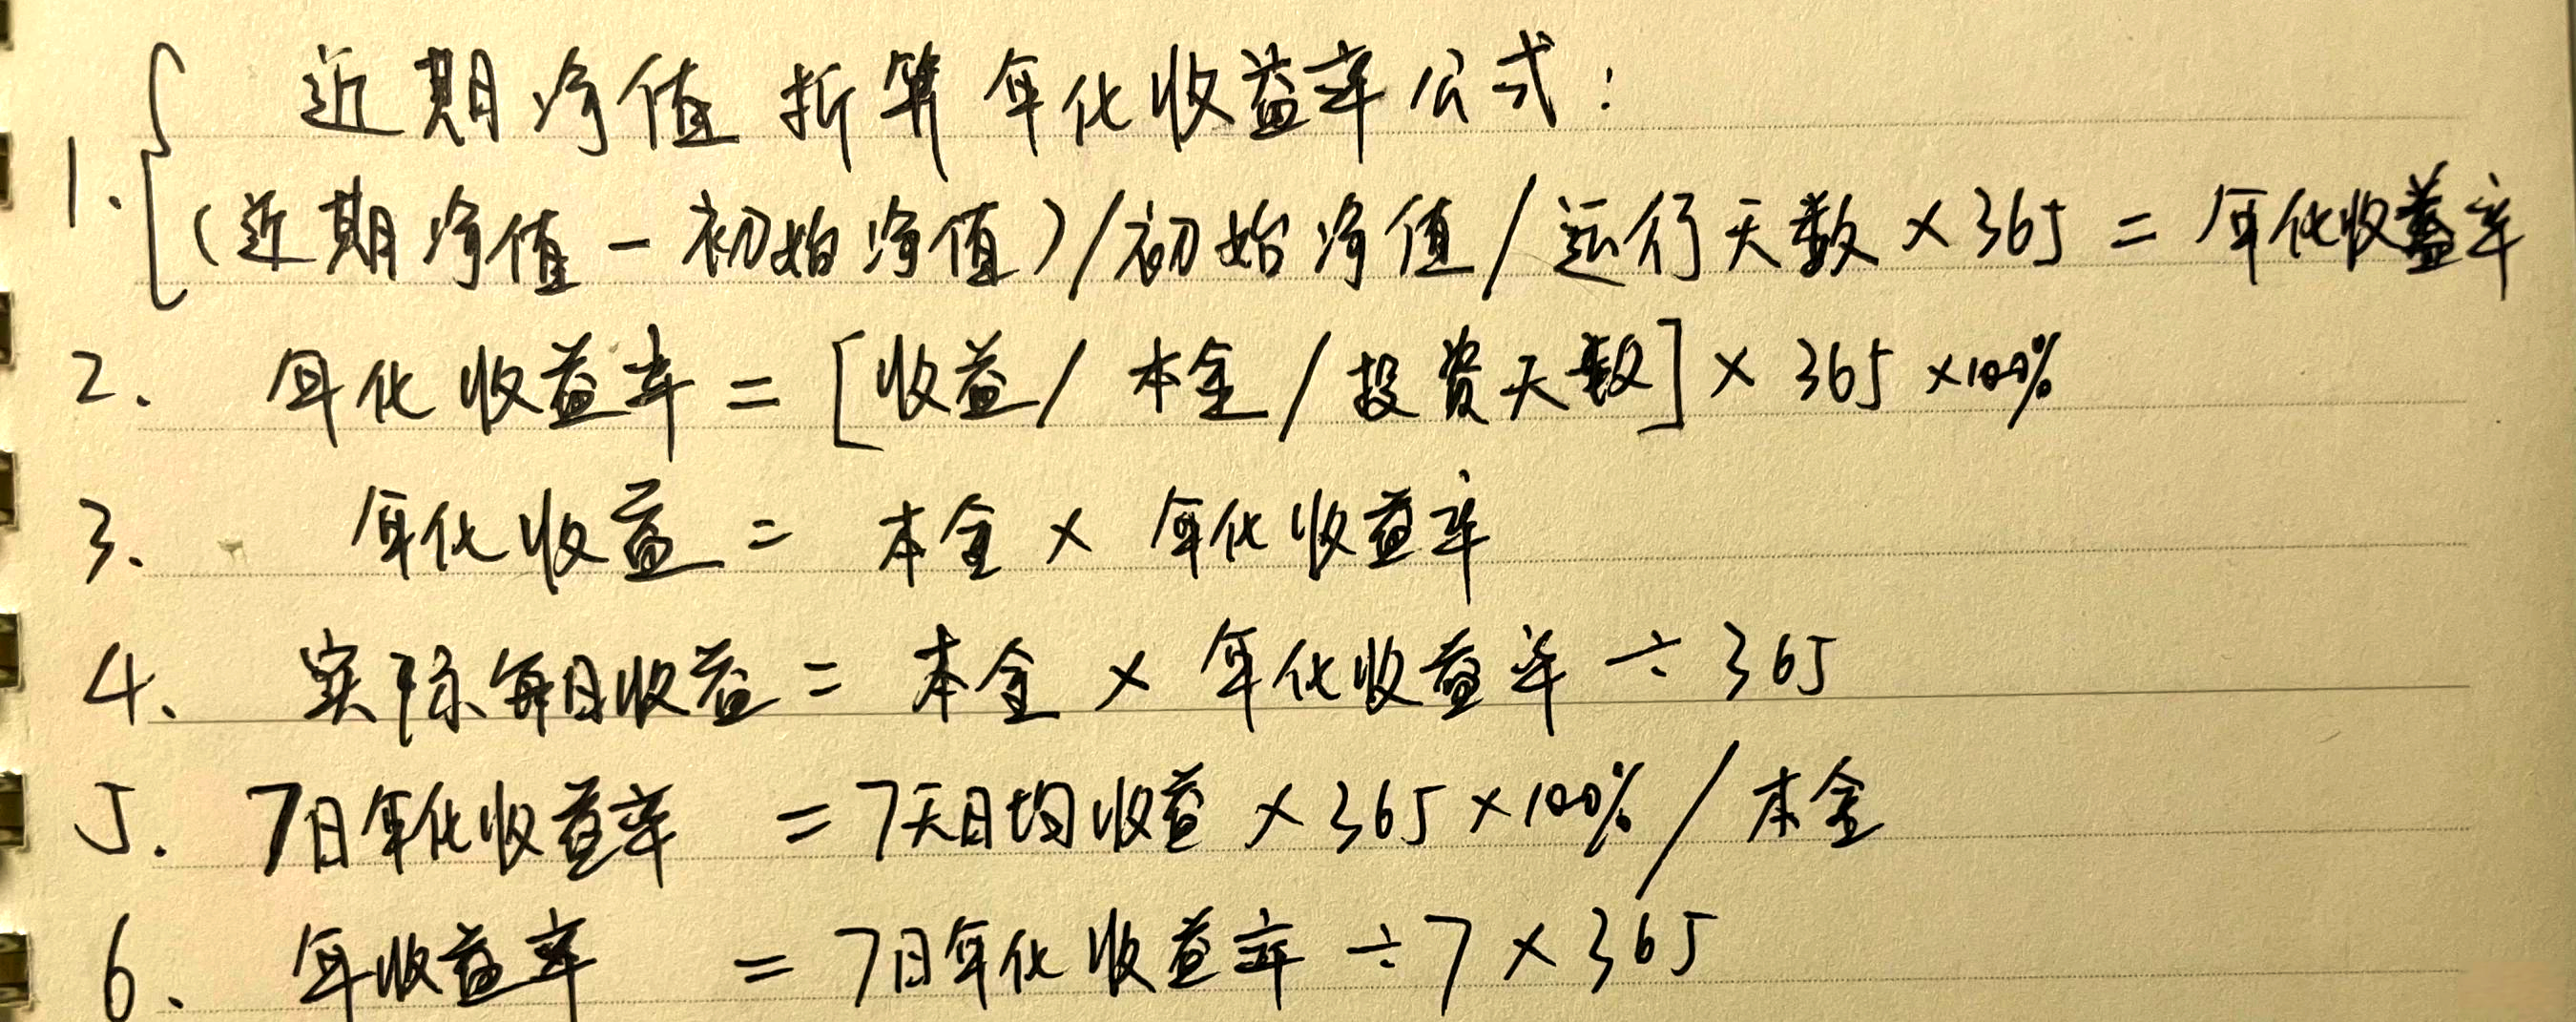 近期净值折算年化收益率公式：
1. (近期净值－初始净值)/初始净值/运行天数×365＝年化收益率
2. 年化收益率＝[收益/本金/投资天数]×365×100%
3. 年化收益＝本金×年化收益率
4. 实际每日收益＝本金×年化收益率÷365
5. 7日年化收益率＝7天日均收益×365×100%/本金
6. 年收益率＝7日年化收益率÷7×365